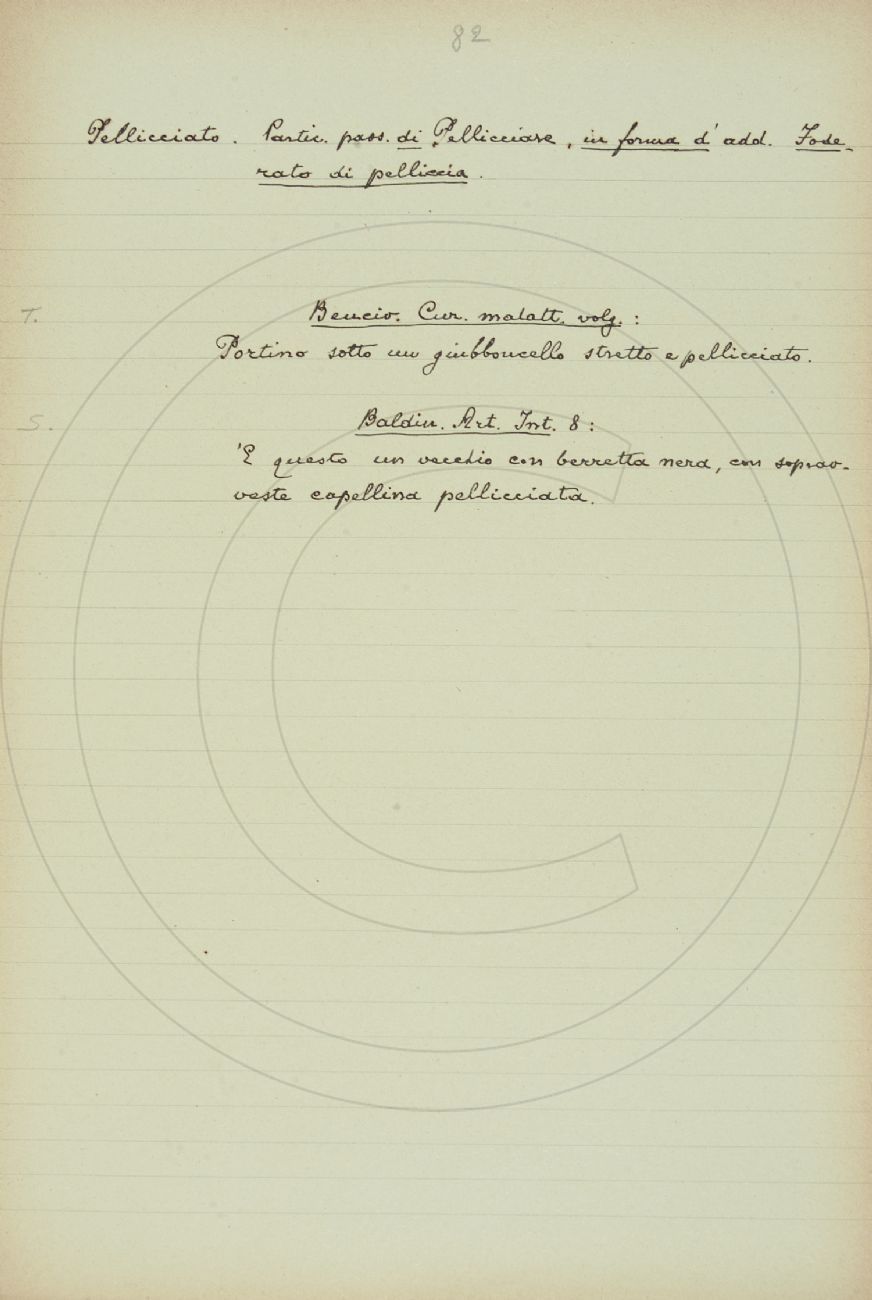 82
Pellicciato. Partic. pass. di Pellicciare, in forma d' add. Fode-
rato di pelliccia.
T. Bencio. Cur. malatt. volg.:
Portino sotto un giubboncello stretto e pellicciato.
S. Baldin. Art. Int. 8:
'E questo un vecchio con berretta nera, con soprav-
veste capellina pellicciata.